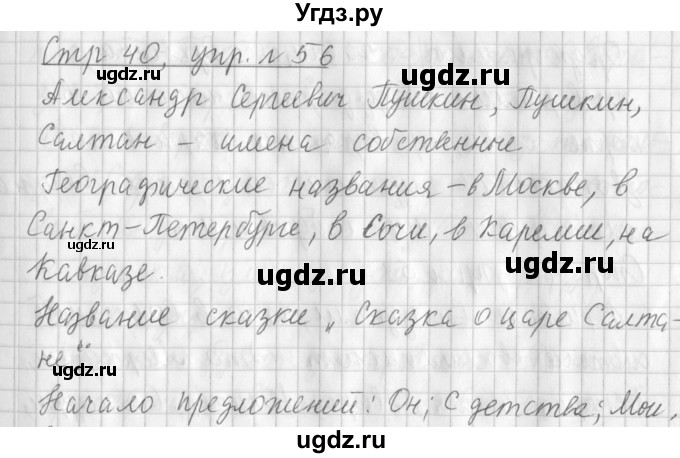 Угдз.ру
Стр 40, упр. № 56
Александр Сергеевич Пушкин, Пушкин,
Салтан – имена собственные
Географические названия – в Москве, в
Санкт-Петербурге, в Сочи, в Карелии, на
Кавказе.
Название сказки „Сказка о царе Салта-
не“
Начало предложений: Он; С детства; Мои,
ugdz.ru
ugdz.ru
ugdz.ru
ugdz.ru
ugdz.ru
ugdz.ru
ugdz.ru
ugdz.ru
ugdz.ru
ugdz.ru